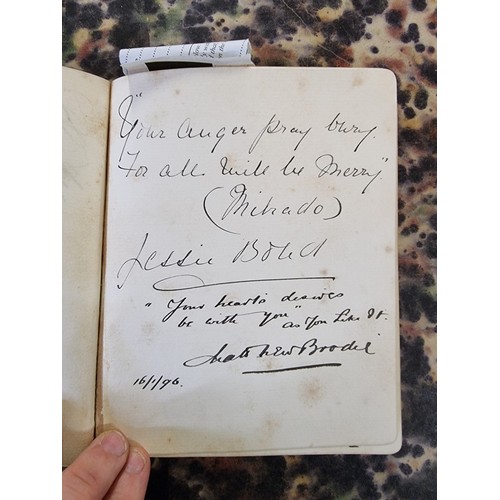 "Your anger pray bury
For all will be Merry"
(Mikado)
Jessie Bond
"Your heart's desires
be with you" as You Like It.
Matthew Brodie
16/1/96.